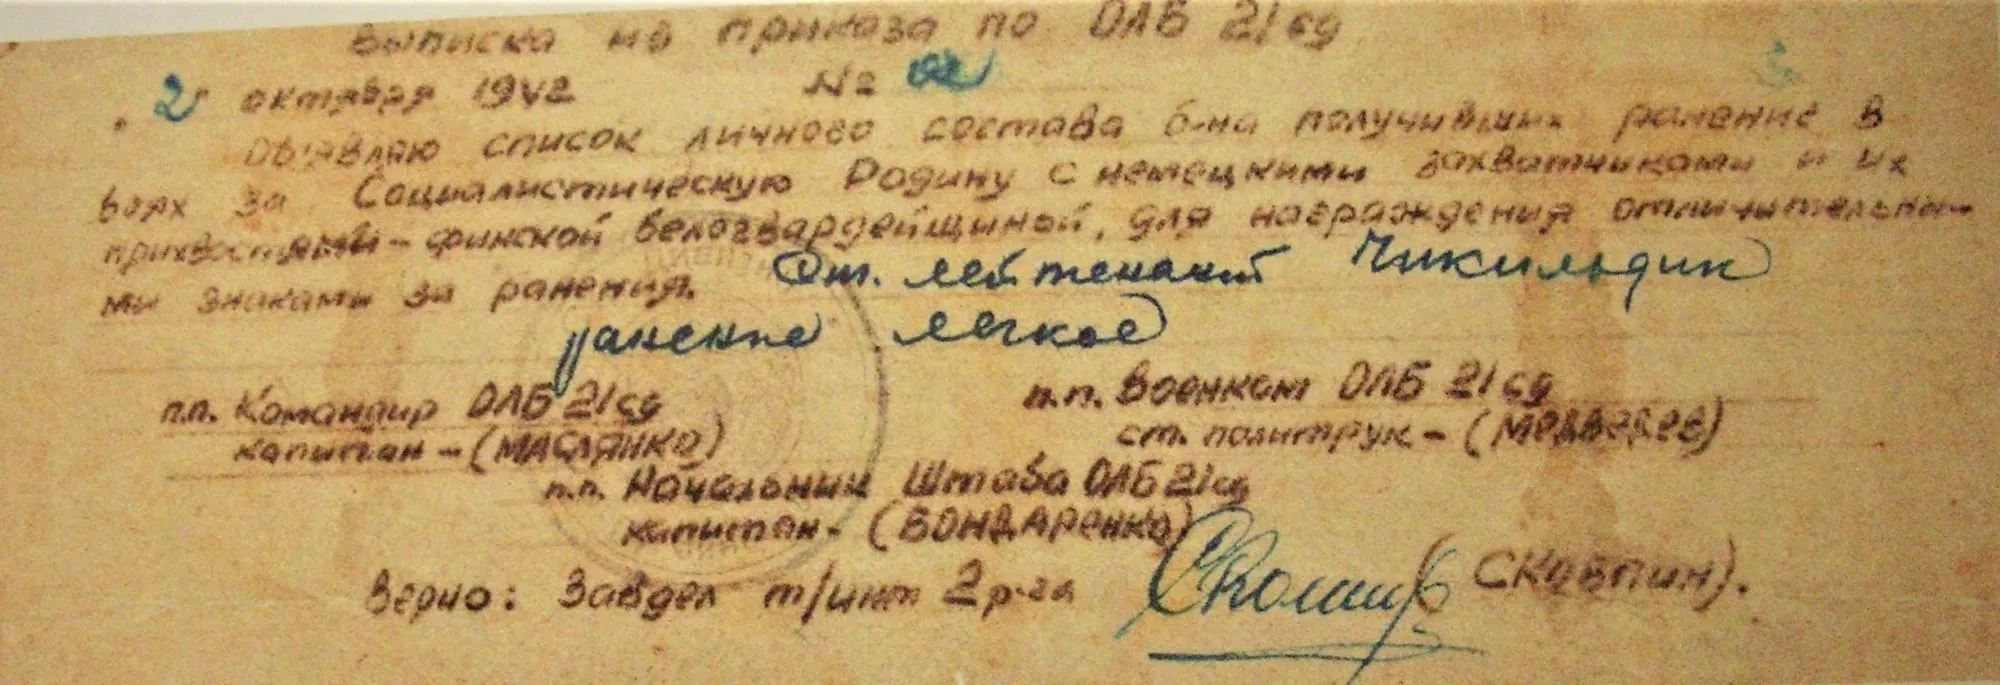 Выписка из приказа по ОЛБ 21 сд
"2" октября 1942 № 02
Объявляю список личного состава б-на получивших ранение в
боях за Социалистическую Родину с немецкими захватчиками и их
прихвостнями - финской белогвардейщиной, для награждения отличительны-
ми знаками за ранения. Ст. лейтенант Чикильдик
ранение легкое
п.п. Командир ОЛБ 21 сд
капитан - (МАСЛЯНКО)
п.п. Военком ОЛБ 21 сд
ст. политрук - (МЕДВЕДЕВ)
п.п. Начальник Штаба ОЛБ 21 сд
капитан - (БОНДАРЕНКО)
Верно: Завдел т/инт 2 р-га (СКОВПИН).